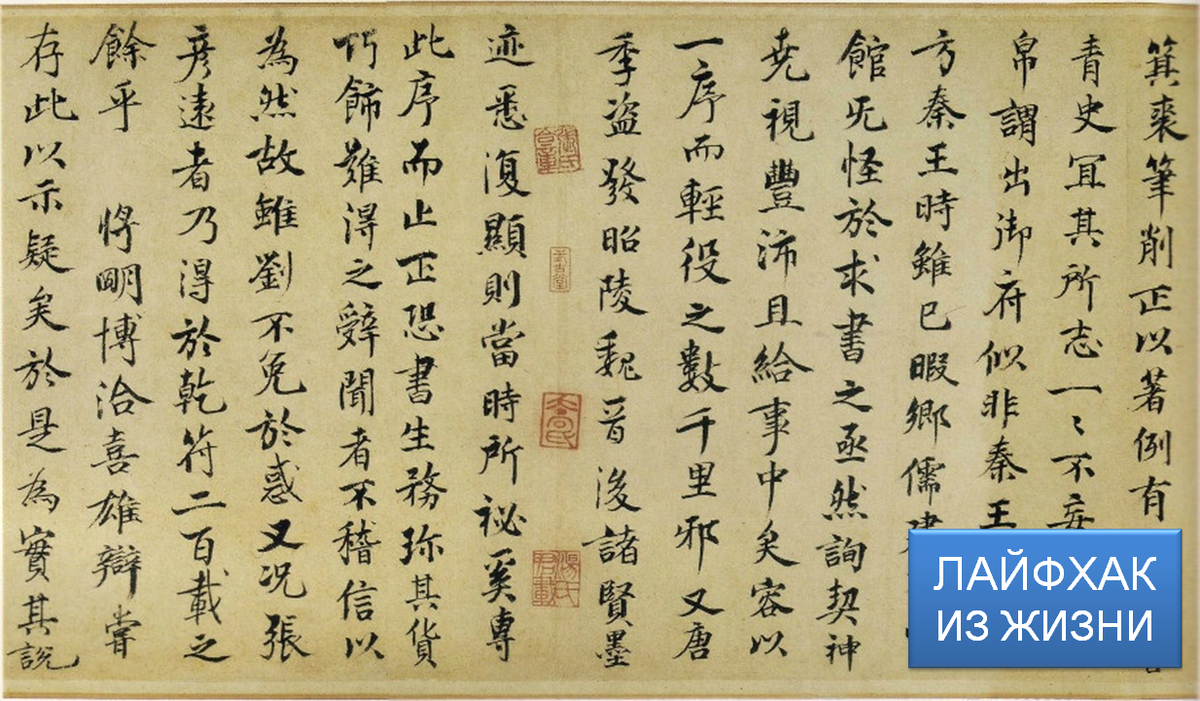 箕裘筆削正以著例有
青史冝其所志一〻不妄
帛謂出御府似非秦王
方秦王時雖已暇鄉儒建
館旡怪於求書之亟然詢契神
尭視豐沛且給事中矣容以
一序而輕役之數千里邪又唐
季盜發昭陵魏晉後諸賢墨
迹悉復顯則當時所祕奚專
此序而止正恐書生務珎其貨
巧飾難得之辤聞者不稽信以
為然故雖劉不免於惑又況張
彦遠者乃得於乾符二百載之
餘乎 將朙博洽喜雄辯甞
存此以示疑矣於是為實其說
ЛАЙФХАК
ИЗ ЖИЗНИ